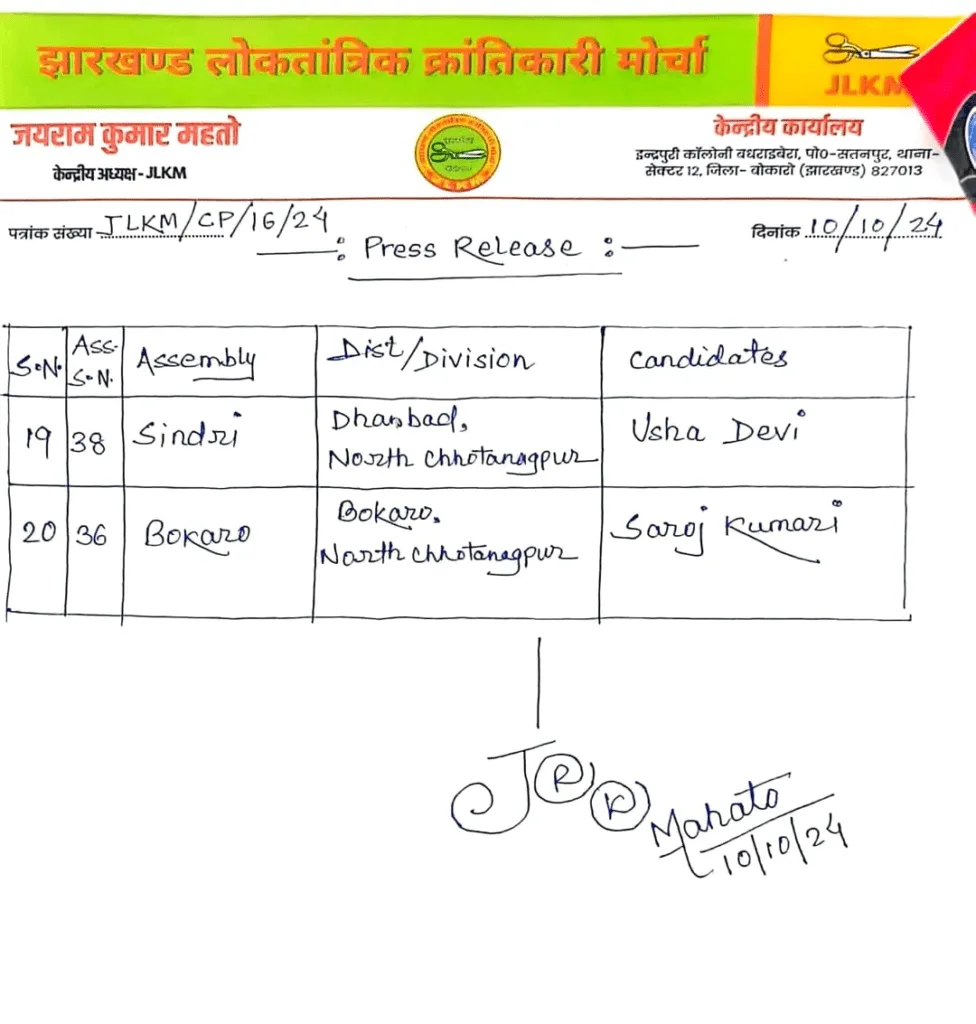 झारखण्ड लोकतांत्रिक क्रांतिकारी मोर्चा
JLKM
जयराम कुमार महतो
केन्द्रीय अध्यक्ष - JLKM
केन्द्रीय कार्यालय
इन्द्रपुरी कॉलोनी बधराइबेरा, पो०-सतनपुर, थाना-
सेक्टर 12, जिला- बोकारो (झारखण्ड) 827013
पत्रांक संख्या JLKM/CP/16/24
दिनांक 10/10/24
—: Press Release :—
S.N. Ass. S.N. Assembly Dist/Division Candidates
19 38 Sindri Dhanbad, North Chhotanagpur Usha Devi
20 36 Bokaro Bokaro, North Chhotanagpur Saroj Kumari
J R K Mahato
10/10/24